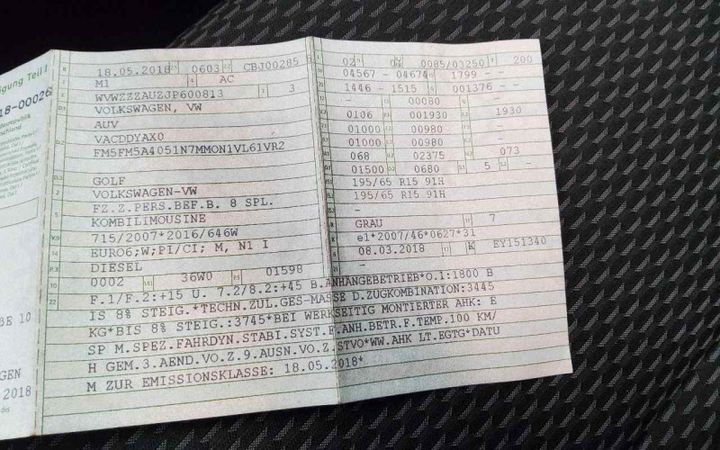 igung Teil I
18-00026
18.05.2018 0603 CBJ00285
M1 AC
WVWZZZAUZJP600813 3
VOLKSWAGEN, VW
AUV
VACDDYAX0
FM5FM5A4051N7MMON1VL61VR2
GOLF
VOLKSWAGEN-VW
FZ.Z.PERS.BEF.B. 8 SPL.
KOMBILIMOUSINE
715/2007*2016/646W
EURO6;W;PI/CI; M, N1 I
DIESEL
0002 36W0 01598
02 01 0085/03250 200
04567 - 04674 1799 --
1446 - 1515 001376 --
- 00080 --
0106 001930 1930
01000 00980 --
01000 00980 --
068 02375 073
01500 0680 5 --
195/65 R15 91H
195/65 R15 91H
--
GRAU 7
e1*2007/46*0627*31
08.03.2018 K EY151340
F.1/F.2:+15 U. 7.2/8.2:+45 B.ANHANGEBETRIEB*O.1:1800 B
IS 8% STEIG.*TECHN.ZUL.GES-MASSE D.ZUGKOMBINATION:3445
KG*BIS 8% STEIG.:3745*BEI WERKSEITIG MONTIERTER AHK: E
SP M.SPEZ.FAHRDYN.STABI.SYST.F.ANH.BETR.F.TEMP.100 KM/
H GEM.3.AEND.VO.Z.9.AUSN.VO.Z.STVO*WW.AHK LT.EGTG*DATU
M ZUR EMISSIONSKLASSE: 18.05.2018*
10
GEN
2018